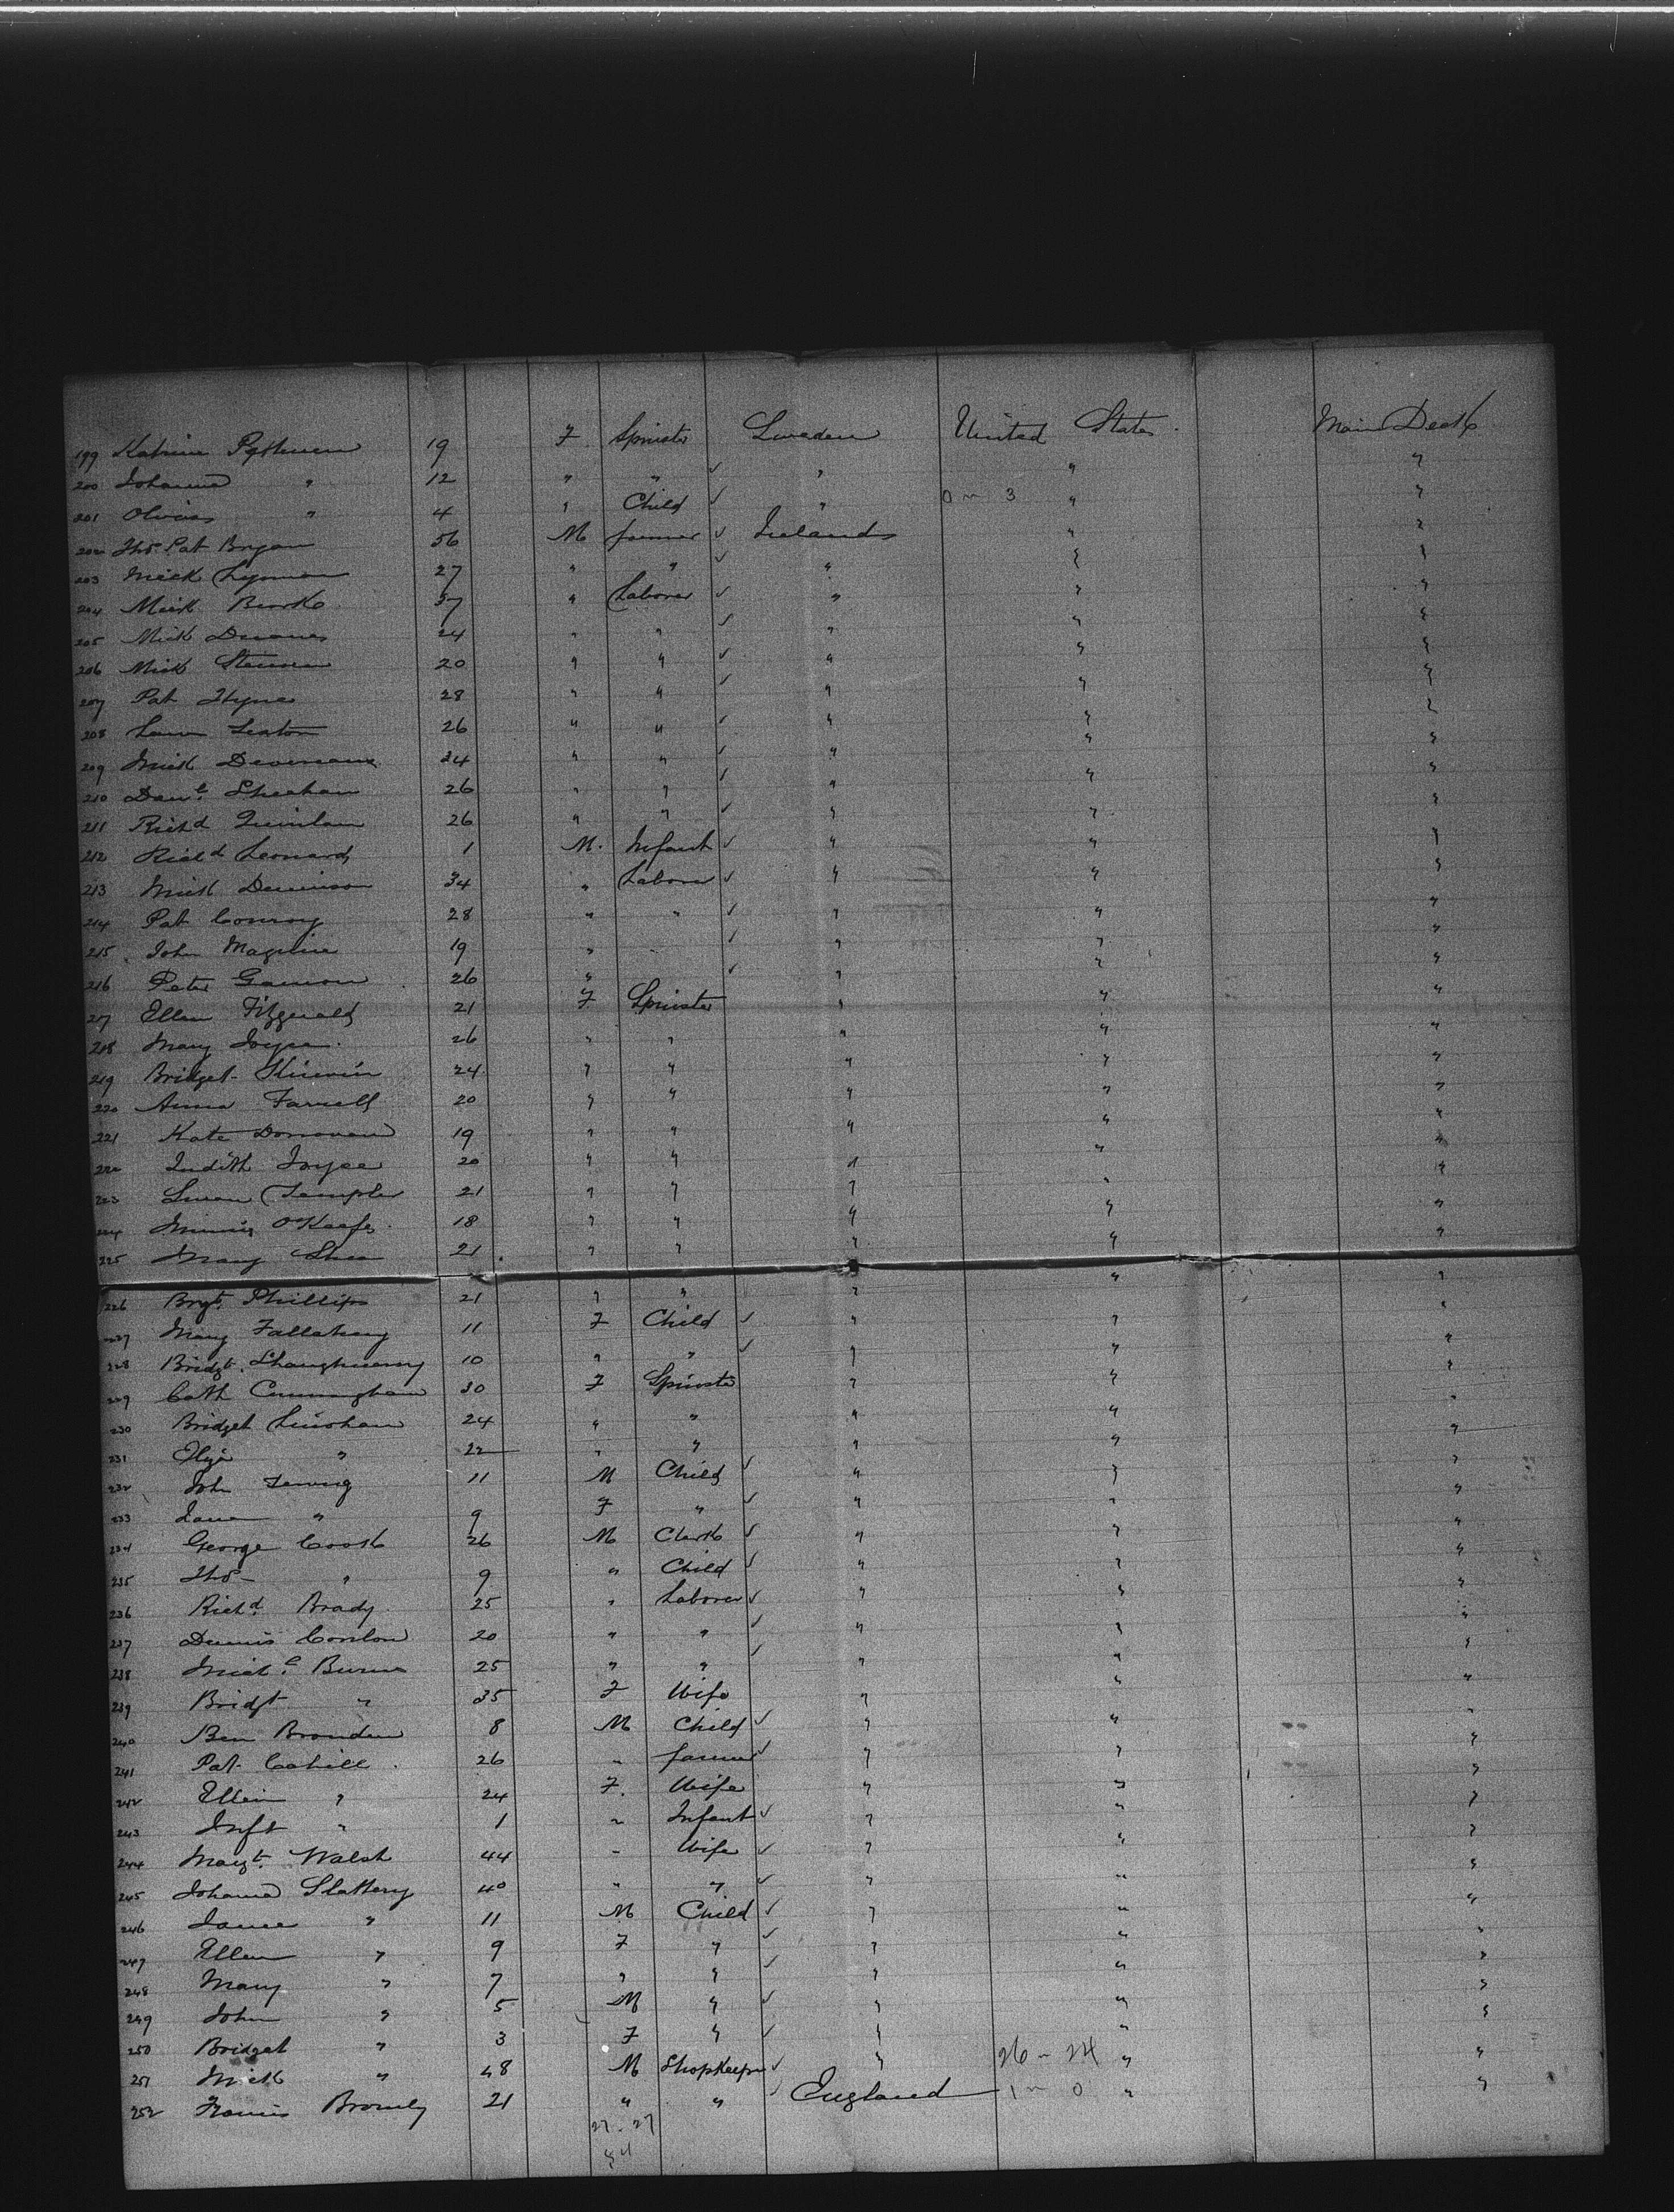 199 Katrina 19 F Spinster Sweden United States Main Deck
200 Johanna " 12 " " " " "
201 Olivia " 4 " Child " 0 — 3 " "
202 Thos. Pat Bryan 56 M farmer Ireland " "
203 Mick 27 " " " " "
204 Mick 37 " Laborer " " "
205 Mick 24 " " " " "
206 Mick 20 " " " " "
207 Pat Hynes 28 " " " " "
208 26 " " " " "
209 Mick Devereaux 24 " " " " "
210 Danl. Sheehan 26 " " " " "
211 Richd Quinlan 26 " " " " "
212 Richd Leonard 1 M. Infant " " "
213 Mick Dennison 34 " Laborer " " "
214 Pat Conroy 28 " " " " "
215 John 19 " " " " "
216 Peter 26 " " " "
217 Ellen Fitzgerald 21 F Spinster " " "
218 Mary Joyce 26 " " " " "
219 Bridget 24 " " " " "
220 Anna Farrell 20 " " " " "
221 Kate Donovan 19 " " " " "
222 Judith Joyce 20 " " " " "
223 Susan Templer 21 " " " " "
224 Minnie O'Keefe 18 " " " " "
225 Mary Shea 21 " " " " "
226 Brgt. Phillips 21 " " " " "
227 Mary Fallahey 11 F Child " " "
228 Bridgt. Shaughnessy 10 " " " " "
229 Cath Cunningham 30 F Spinster " " "
230 Bridget 24 " " " " "
231 Eliza " 22 " " " " "
232 John 11 M Child " " "
233 Jane " 9 F " " " "
234 George Cook 26 M Clerk " " "
235 Thos " 9 " Child " " "
236 Richd. Brady 25 " Laborer " " "
237 Dennis Conlon 20 " " " " "
238 Michl. Burns 25 " " " " "
239 Bridgt " 35 F Wife " " "
240 Ben 8 M Child " " "
241 Pat Cahill 26 " farmer " " "
242 Ellen " 24 F. Wife " " "
243 Inft " 1 " Infant " " "
244 Margt. Walsh 44 " Wife " " "
245 Johanna Slattery 40 " " " " "
246 James " 11 M Child " " "
247 Ellen " 9 F " " " "
248 Mary " 7 " " " " "
249 John " 5 M " " " "
250 Bridget " 3 F " " " "
251 Mick " 48 M Shopkeeper " 26 — 24 " "
252 Francis Bromly 21 " " England 1 — 0 " "
27 - 27
54